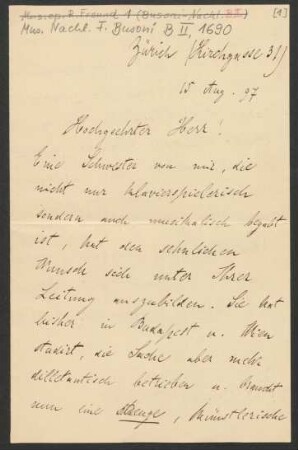 Mus. ep. R. Freund 1 (Busoni-Nachl. B II)
Mus. Nachl. F. Busoni B II, 1690
[1]
Zürich (Kirchgasse 31)
15 Aug. 97
Hochgeehrter Herr!
Eine Schwester von mir, die
nicht nur klavierspielerisch
sondern auch musikalisch begabt
ist, hat den sehnlichen
Wunsch sich unter Ihrer
Leitung auszubilden. Sie hat
bisher in Budapest u. Wien
studirt, die Sache aber mehr
dilletantisch betrieben u. braucht
nun eine strenge, künstlerische